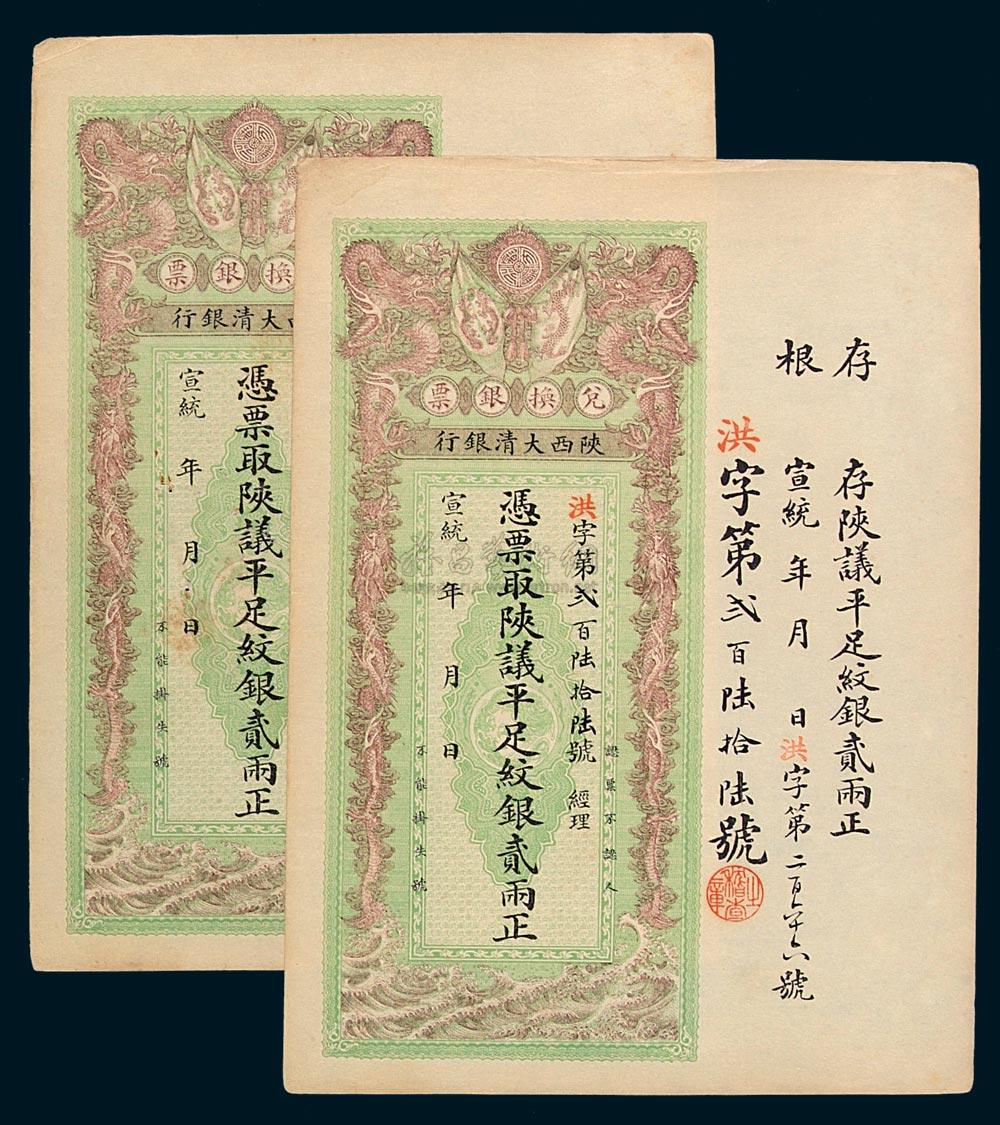 票銀換
行銀清大西
憑票取陝議平足紋銀貳兩正
宣統 年 月 日
不能掛失號
兌換銀票
陝西大清銀行
認票不認人
洪字第弍百陸拾陸號 經理
憑票取陝議平足紋銀貳兩正
宣統 年 月 日
不能掛失號
存根
存陝議平足紋銀貳兩正
宣統 年 月 日洪字第二百六十六號
洪字第弍百陸拾陸號
稽查之章